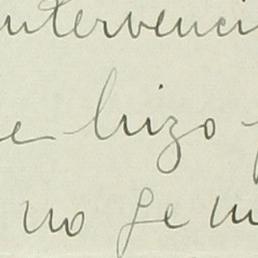 intervenci
e hizo
no ge